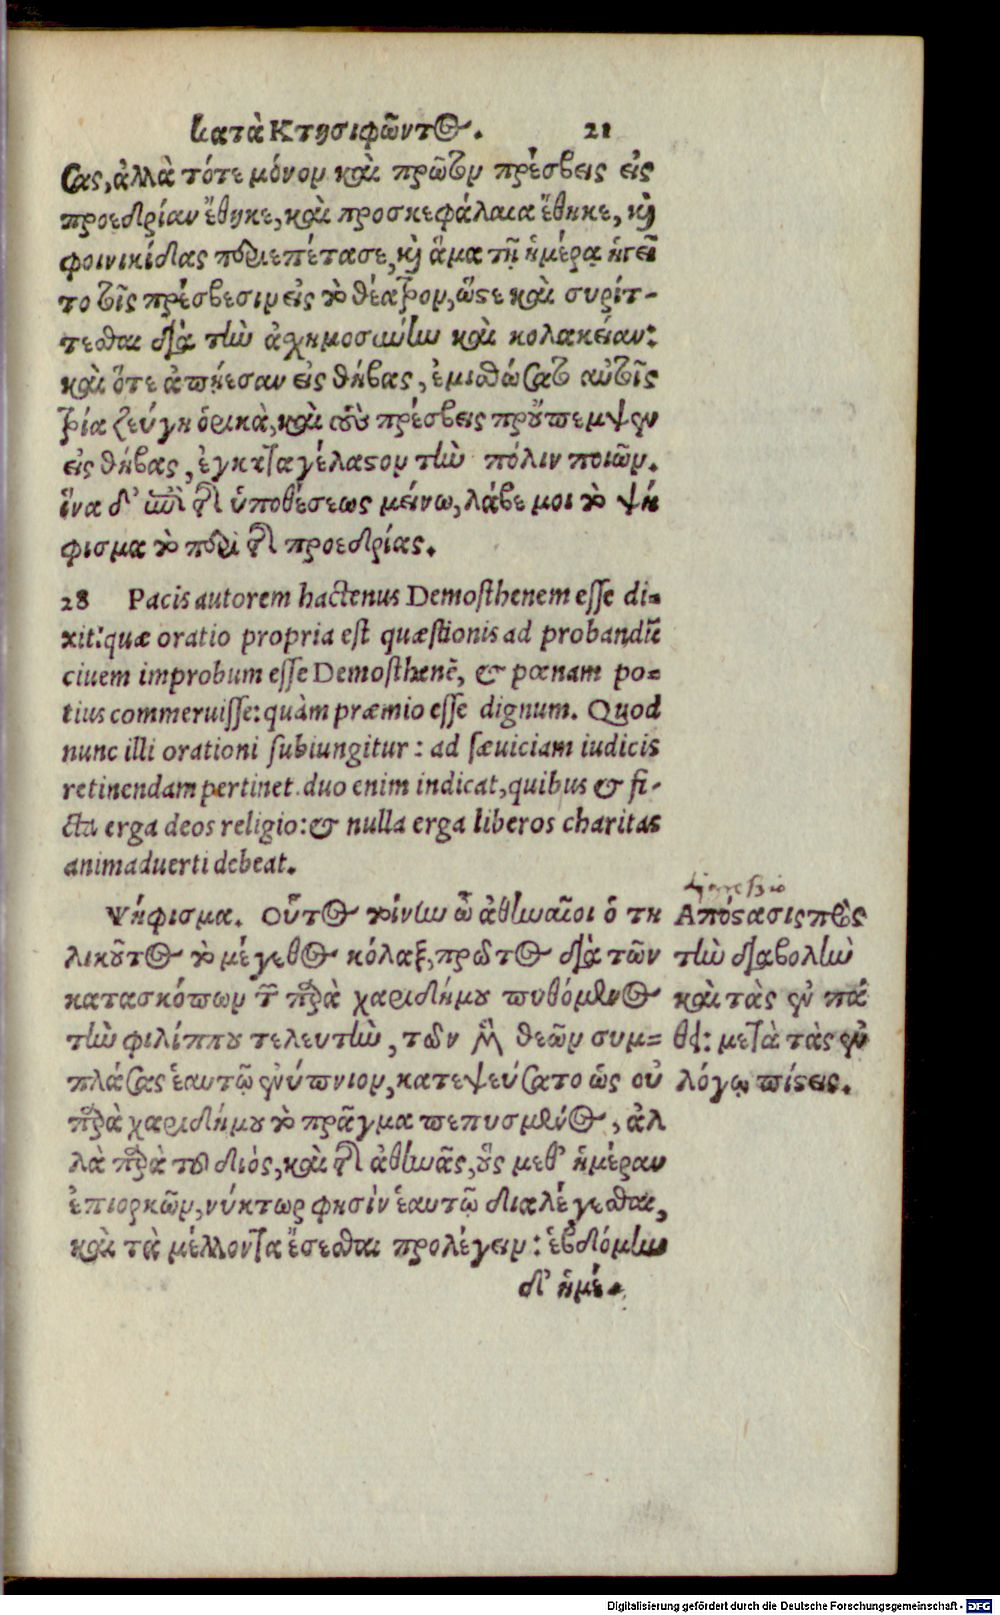 κατὰ Κτησιφῶντος. 21
σας, ἀλλὰ τότε μόνον καὶ πρῶτον πρέσβεις εἰς
προεδρίαν ἔθηκε, καὶ προσκεφάλαια ἔθηκε, καὶ
φοινικίδας περιεπέτασε, καὶ ἅμα τῇ ἡμέρᾳ ἡγεῖ
το τοῖς πρέσβεσιν εἰς τὸ θέατρον, ὥστε καὶ συρίτ-
τεσθαι διὰ τὴν ἀχημοσύνην καὶ κολακείαν:
καὶ ὅτε ἀπῄεσαν εἰς θήβας, ἐμισθώσατο αὐτοῖς
τρία ζεύγη ὀρικὰ, καὶ τοὺς πρέσβεις προὔπεμψεν
εἰς θήβας, ἐγκαταγέλαστον τὴν πόλιν ποιῶν.
ἵνα δ' ἐπὶ τῆς ὑποθέσεως μείνω, λάβε μοι τὸ ψή
φισμα τὸ περὶ τῆς προεδρίας.
28 Pacis autorem hactenus Demosthenem esse di-
xit: quæ oratio propria est quæstionis ad probandũ
ciuem improbum esse Demosthenẽ, & pœnam po-
tius commeruisse: quàm præmio esse dignum. Quod
nunc illi orationi subiungitur: ad sæuiciam iudicis
retinendam pertinet. duo enim indicat, quibus & fi-
cta erga deos religio: & nulla erga liberos charitas
animaduerti debeat.
Ψήφισμα. Οὗτος τοίνυν ὦ ἀθηναῖοι ὁ τη
λικοῦτος τὸ μέγεθος κόλαξ, πρῶτος διὰ τῶν
κατασκόπων τῶν παρὰ χαριδήμου πυθόμενος
τὴν φιλίππου τελευτὴν, τῶν μὲν θεῶν συμ-
πλάσας ἑαυτῷ ἐνύπνιον, κατεψεύσατο ὡς οὐ
παρὰ χαριδήμου τὸ πρᾶγμα πεπυσμένος, ἀλ
λὰ παρὰ τοῦ διὸς, καὶ τῆς ἀθηνᾶς, οὓς μεθ' ἡμέραν
ἐπιορκῶν, νύκτωρ φησὶν ἑαυτῷ διαλέγεσθαι,
καὶ τὰ μέλλοντα ἔσεσθαι προλέγειν: ἑβδόμην
δ' ἡμέ-
Ἀπόστασις πρὸς
τὴν διαβολὴν
καὶ τὰς ἐν πά
θει: μετὰ τὰς ἐν
λόγῳ πίστεις.